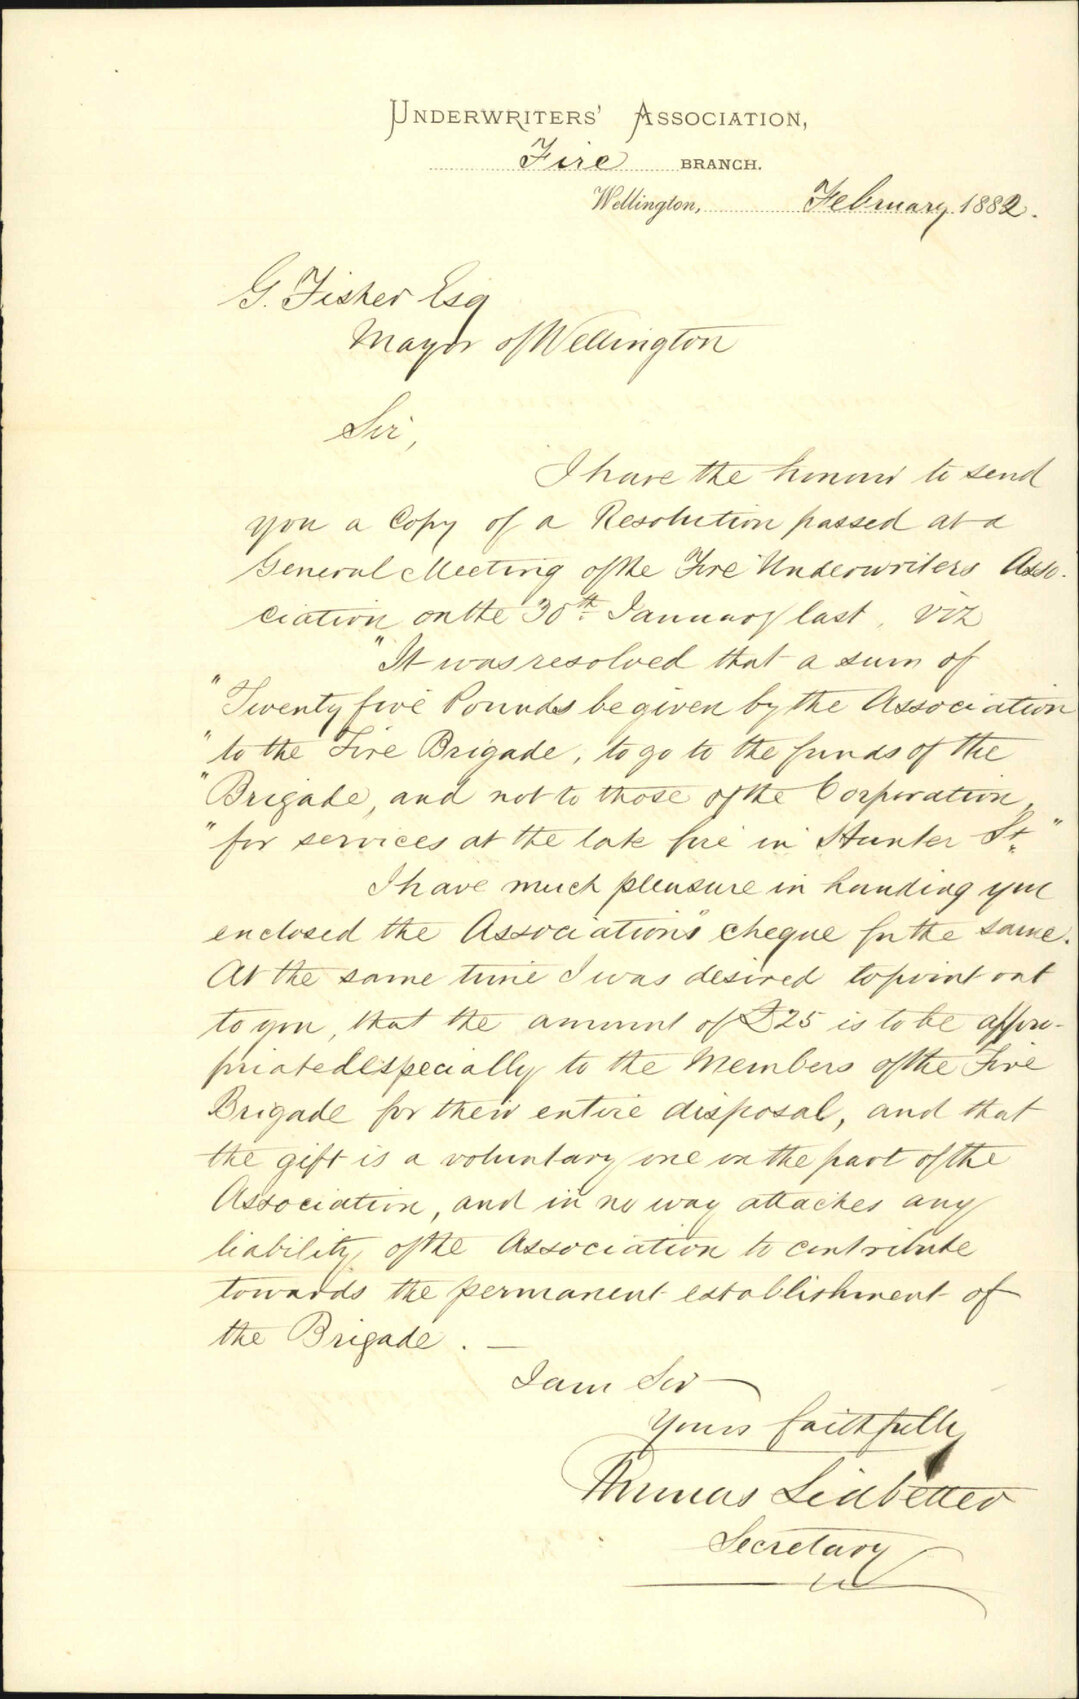 UNDERWRITERS' ASSOCIATION,
Fire BRANCH.
Wellington, February 1882.
G. Fisher Esq
Mayor of Wellington
Sir,
I have the honour to send
you a Copy of a Resolution passed at a
General Meeting of the Fire Underwriters Asso-
ciation on the 30th January last, viz
"It was resolved that a sum of
"Twenty five Pounds be given by the Association
"to the Fire Brigade, to go to the funds of the
"Brigade, and not to those of the Corporation,
"for services at the late fire in Hunter St."
I have much pleasure in handing you
enclosed the Association's cheque for the same.
At the same time I was desired to point out
to you, that the amount of £25 is to be appro-
priated especially to the Members of the Fire
Brigade for their entire disposal, and that
the gift is a voluntary one on the part of the
Association, and in no way attaches any
liability of the Association to contribute
towards the permanent establishment of
the Brigade. —
I am Sir
Yours faithfully
Thomas Lidbetter
Secretary